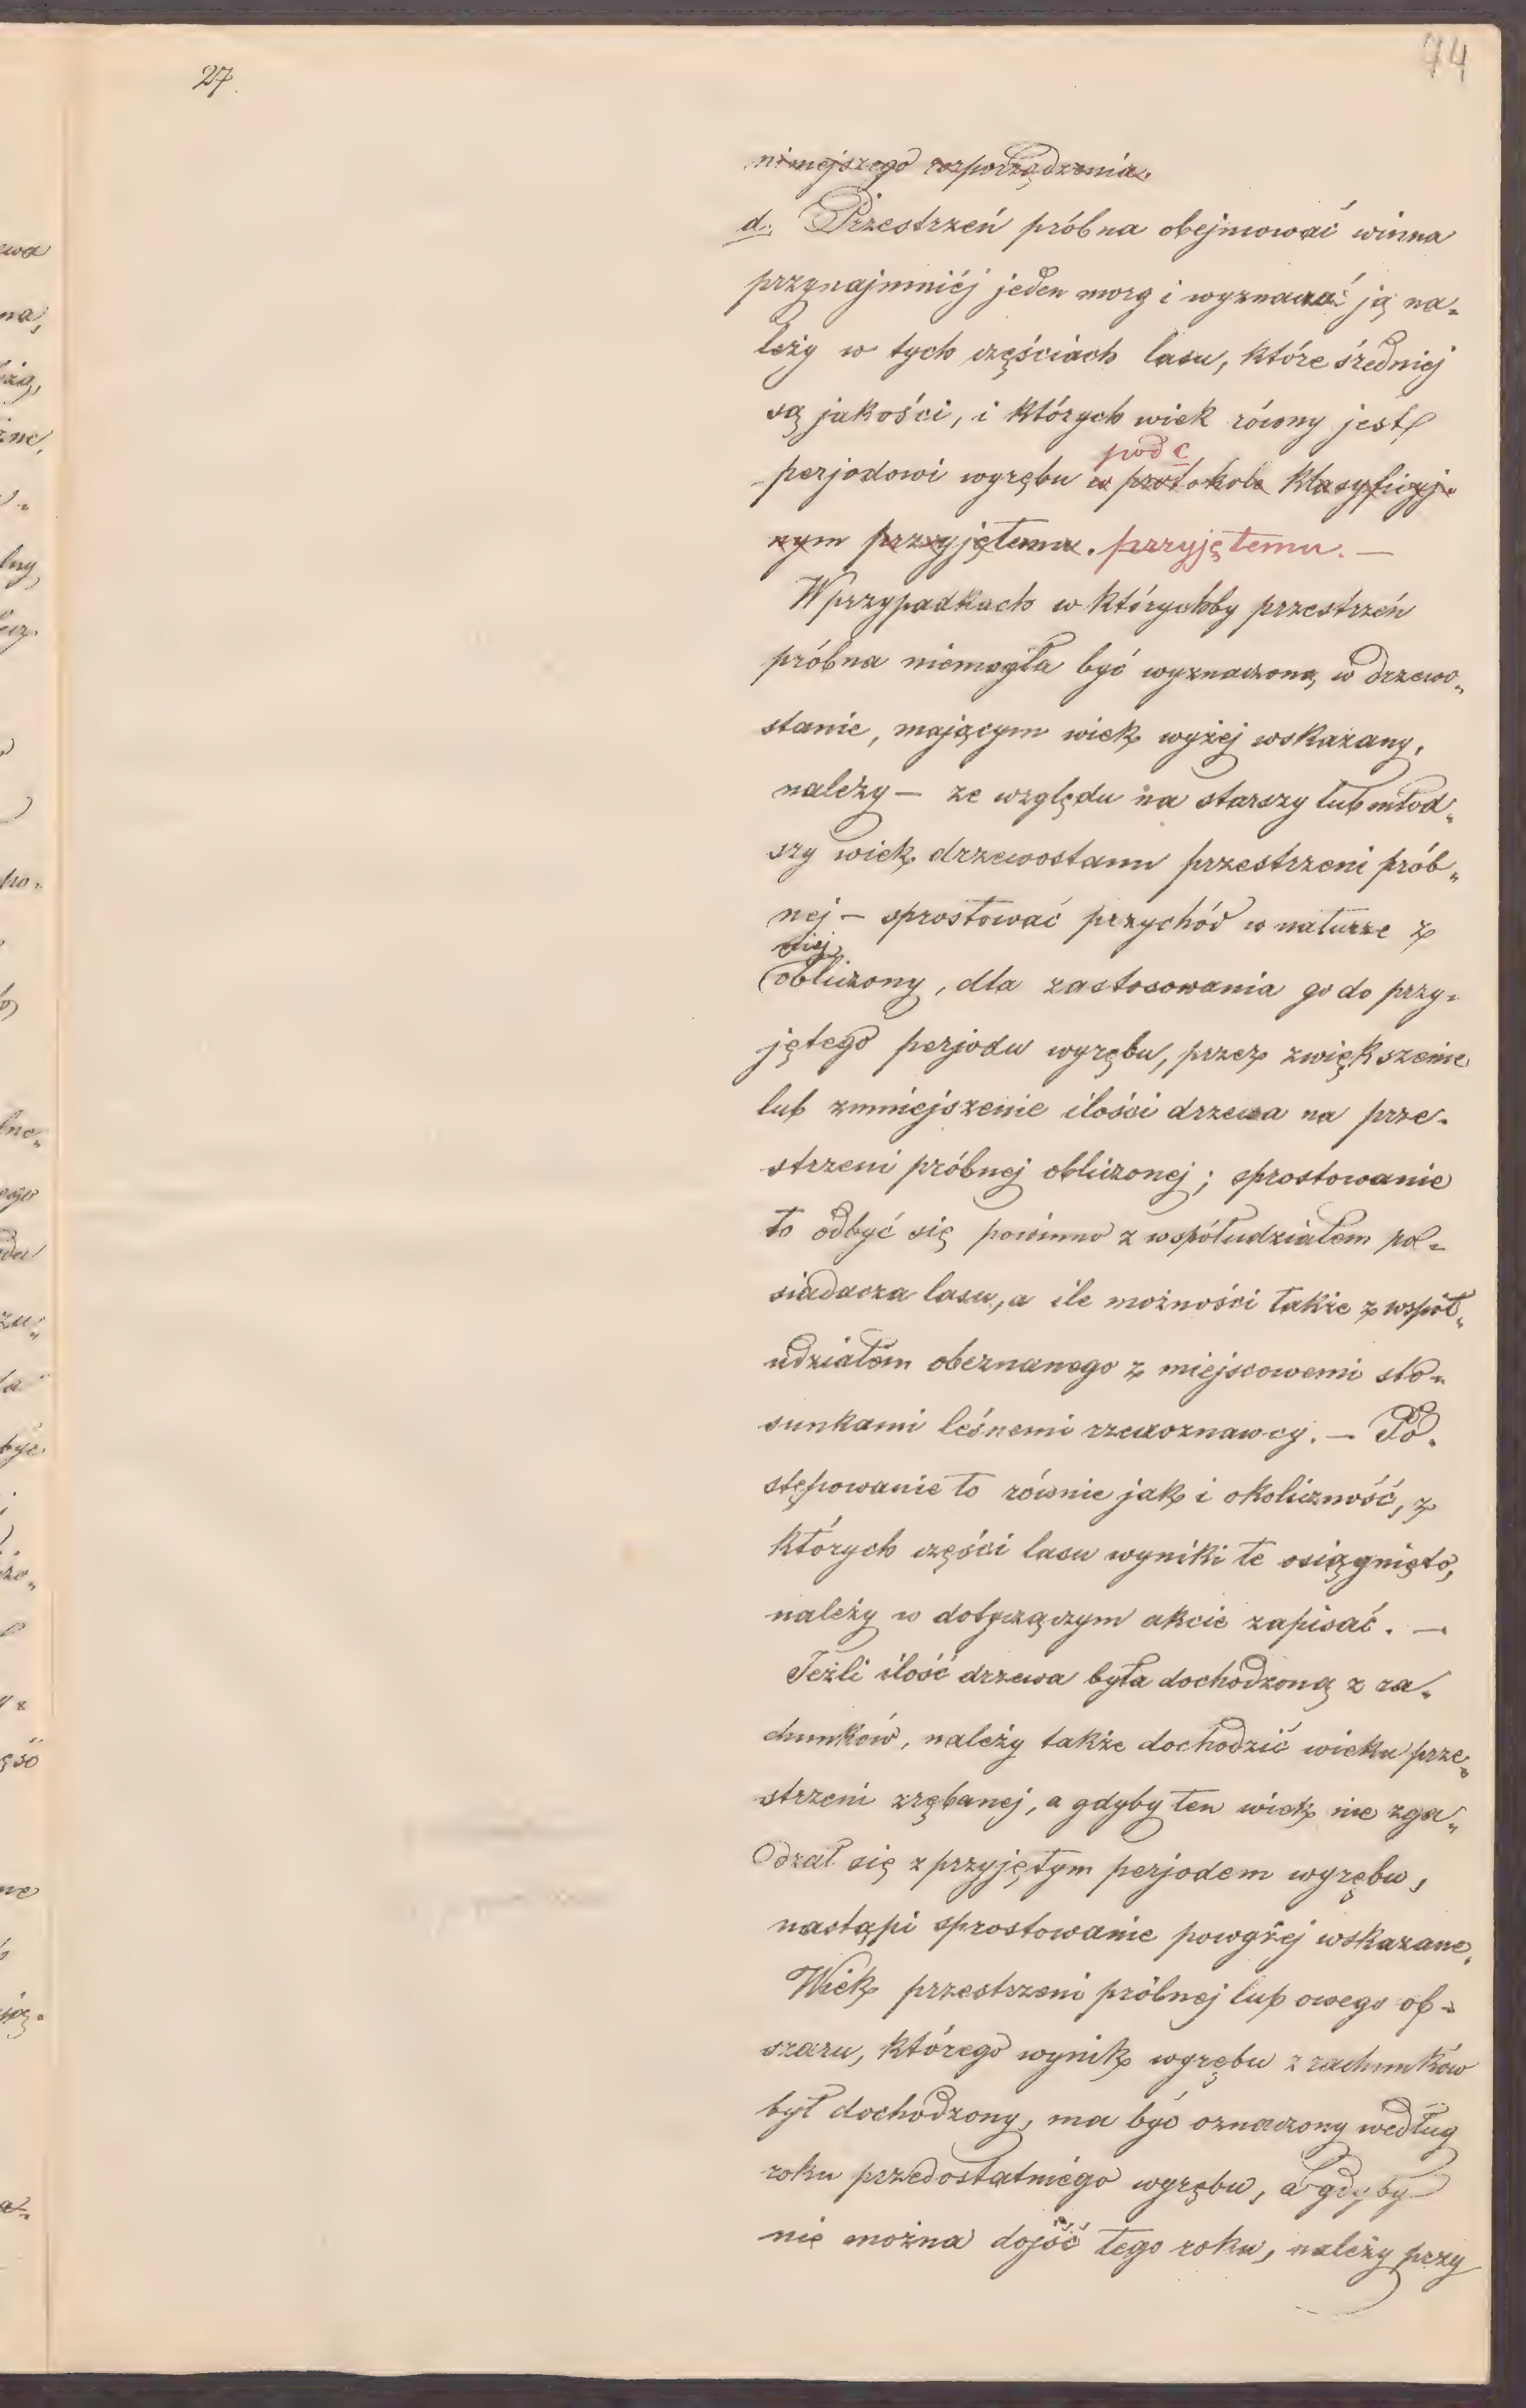 27.
74
niniejszego rozporządzenia.
d. Przestrzeń próbna obejmować winna
przynajmniéj jeden morg i wyznaczać ją na„
leży w tych częściach lasu, które średniej
są jakości, i których wiek równy jest
pod c
perjodowi wyrębu w protokole klasyficyj„
nym przyjętemu. przyjętemu. —
W przypadkach w którychby przestrzeń
próbna niemogła być wyznaczoną w drzewo„
stanie, mającym wiek wyżej wskazany,
należy — ze względu na starszy lub młod„
szy wiek drzewostanu przestrzeni prób„
nej — sprostować przychód w naturze z
niej
obliczony, dla zastosowania go do przy„
jętego perjodu wyrębu, przez zwiększenie
lub zmniejszenie ilości drzewa na prze„
strzeni próbnej obliczonej; sprostowanie
to odbyć się powinno z współudziałem po„
siadacza lasu, a ile możności także z współ„
udziałem obeznanego z miejscowemi sto„
sunkami leśnemi rzeczoznawcy. — Po„
stępowanie to równie jak i okoliczność, z
których części lasu wyniki te osiągnięto,
należy w dotyczącym akcie zapisać. —
Jeżli ilość drzewa była dochodzoną z ra„
chunków, należy także dochodzić wieku prze„
strzeni zrębanej, a gdyby ten wiek nie zga„
dzał się z przyjętym perjodem wyrębu,
nastąpi sprostowanie powyżej wskazane.
Wiek przestrzeni próbnej lub owego ob„
szaru, którego wynik wyrębu z rachunków
był dochodzony, ma być oznaczony według
roku przedostatniego wyrębu, a gdyby
nie można dojść tego roku, należy przy